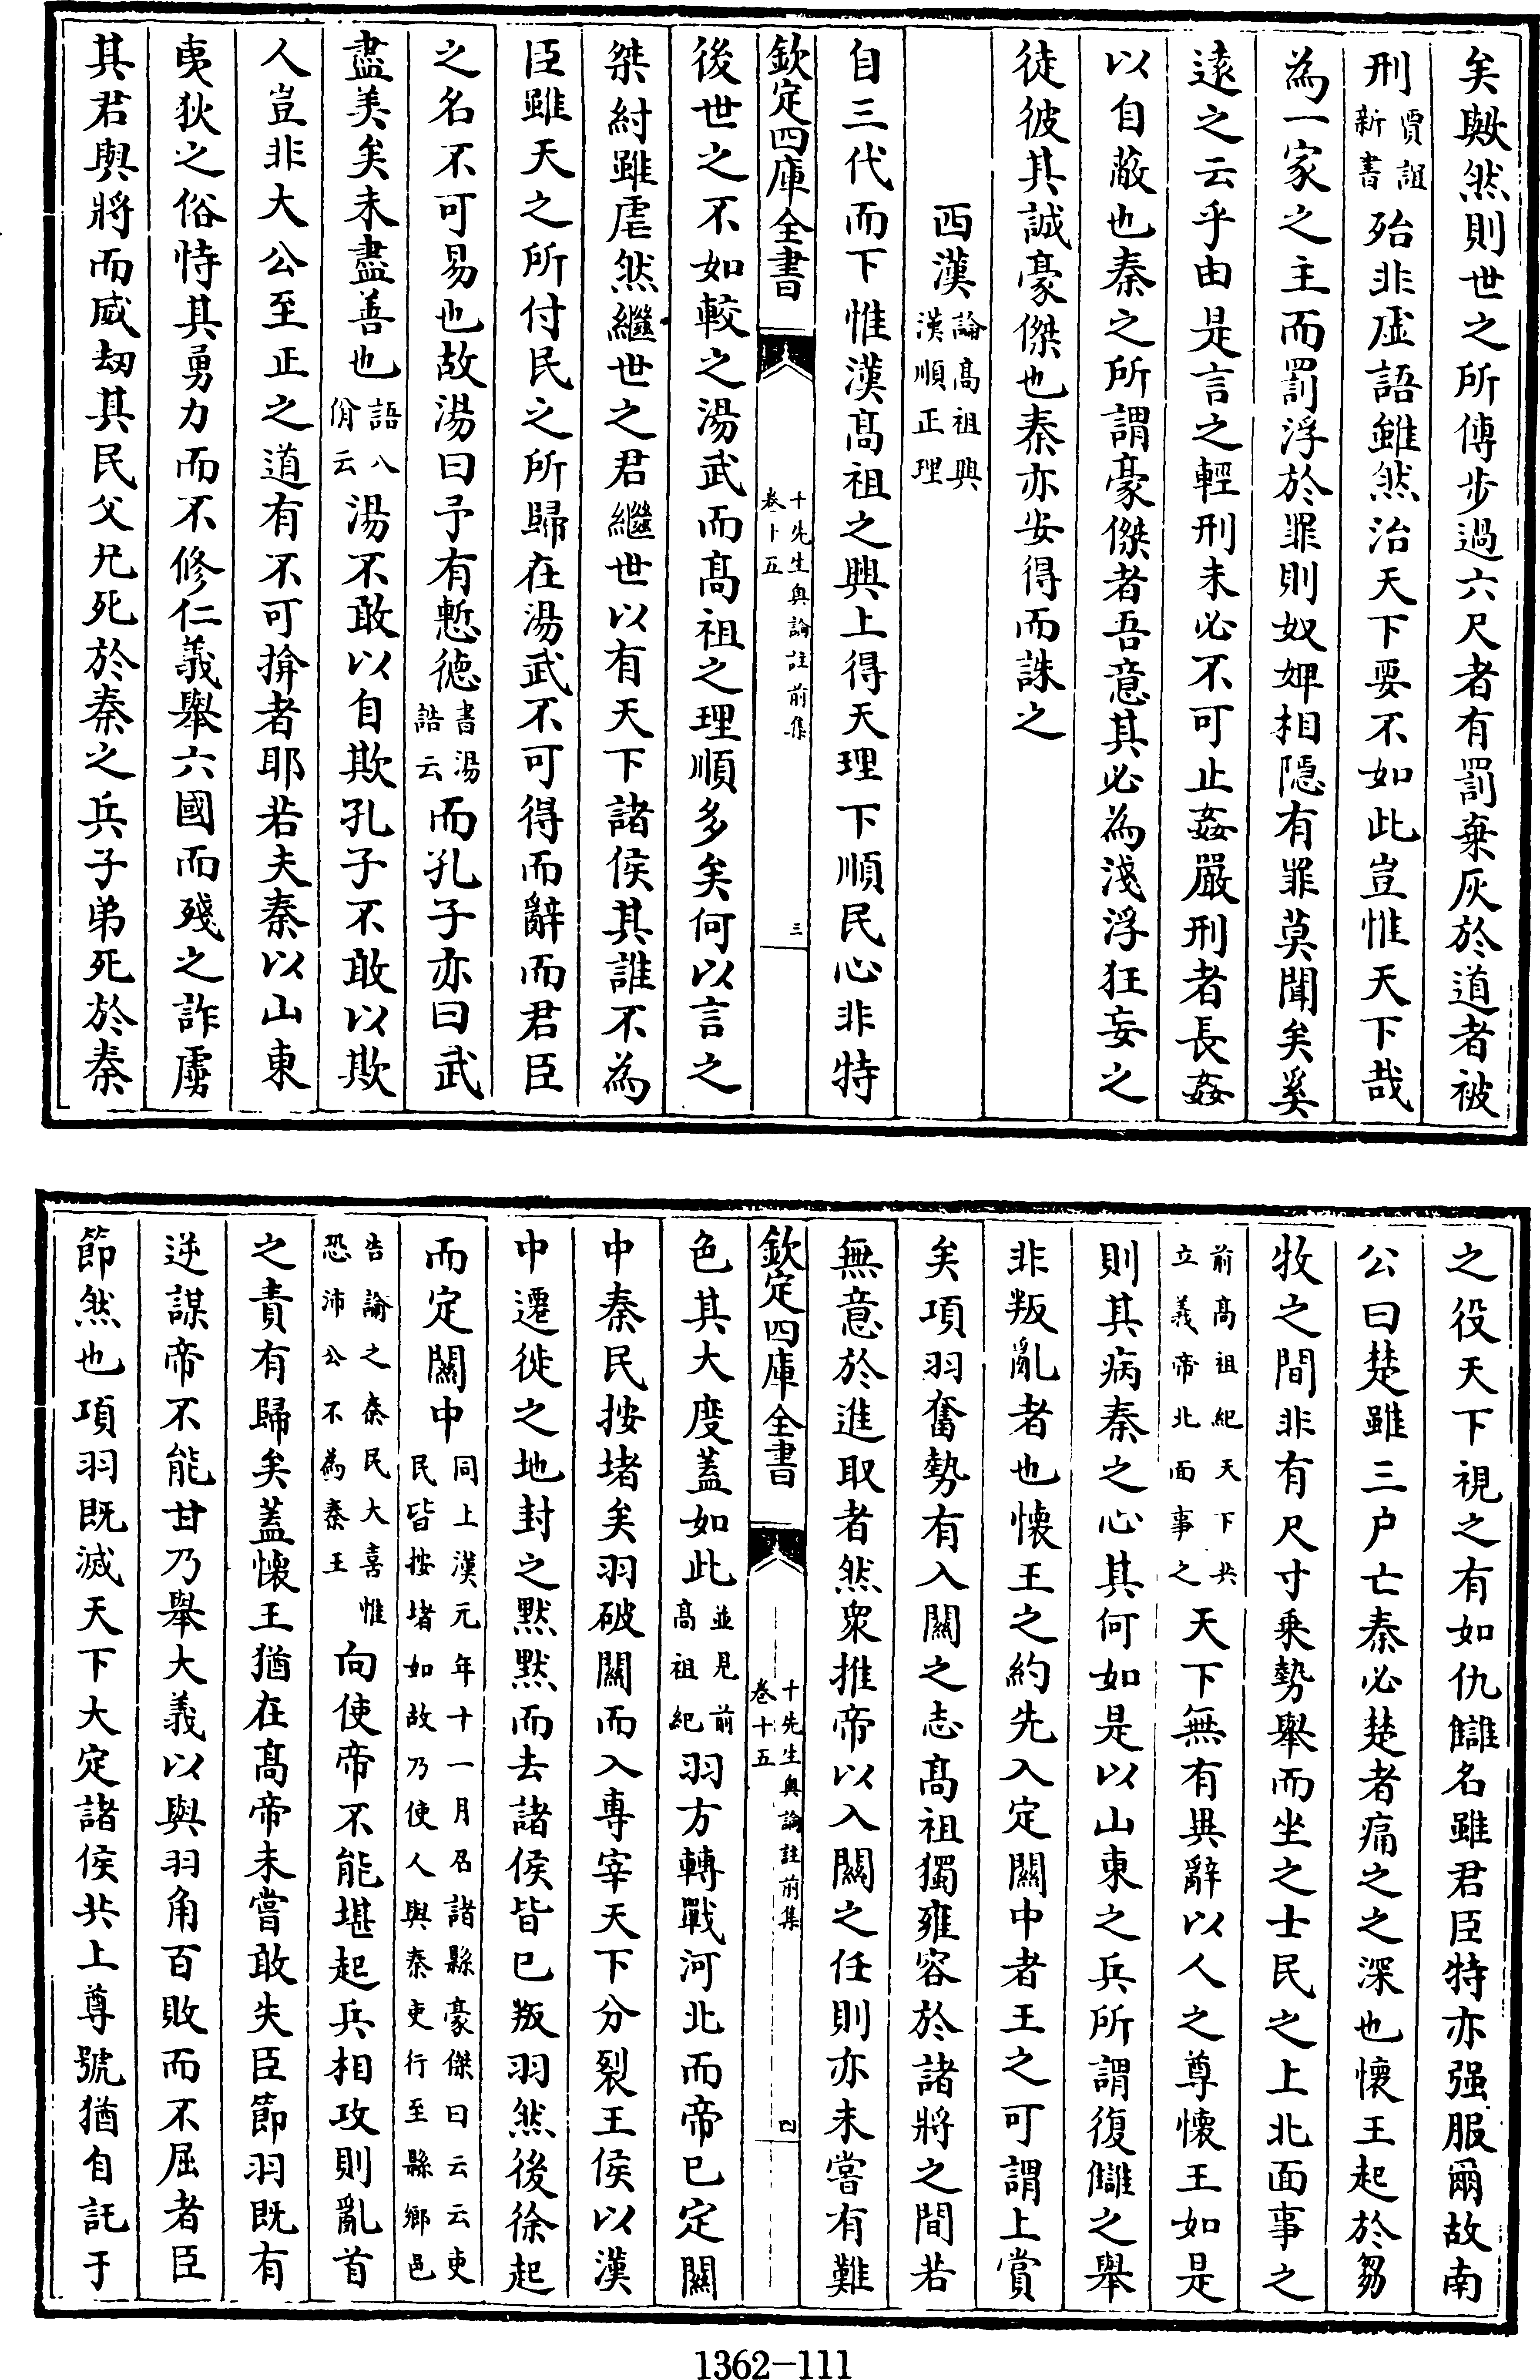 矣歟然則世之所傳步過六尺者有罰棄灰於道者被
刑賈誼新書殆非虛語雖然治天下要不如此豈惟天下哉
為一家之主而罰浮於罪則奴婢相隱有罪莫聞矣奚
逺之云乎由是言之輕刑未必不可止姦嚴刑者長姦
以自蔽也秦之所謂豪傑者吾意其必為淺浮狂妄之
徒彼其誠豪傑也秦亦安得而誅之
西漢論髙祖興漢順正理
自三代而下惟漢髙祖之興上得天理下順民心非特
欽定四庫全書
十先生奥論註前集
卷十五
三
後世之不如較之湯武而髙祖之理順多矣何以言之
桀紂雖虐然繼世之君繼世以有天下諸侯其誰不為
臣雖天之所付民之所歸在湯武不可得而辭而君臣
之名不可易也故湯曰予有慙徳書湯誥云而孔子亦曰武
盡美矣未盡善也語八佾云湯不敢以自欺孔子不敢以欺
人豈非大公至正之道有不可揜者耶若夫秦以山東
夷狄之俗恃其勇力而不修仁義舉六國而殘之詐虜
其君與將而威刼其民父兄死於秦之兵子弟死於秦
之役天下視之有如仇讎名雖君臣特亦强服爾故南
公曰楚雖三户亡秦必楚者痛之之深也懷王起於芻
牧之間非有尺寸乗勢舉而坐之士民之上北面事之
前髙祖紀天下共立義帝北面事之天下無有異辭以人之尊懷王如是
則其病秦之心其何如是以山東之兵所謂復讎之舉
非叛亂者也懷王之約先入定關中者王之可謂上賞
矣項羽奮勢有入關之志髙祖獨雍容於諸將之間若
無意於進取者然衆推帝以入關之任則亦未嘗有難
欽定四庫全書
十先生奥論註前集
卷十五
四
色其大度蓋如此並見前髙祖紀羽方轉戰河北而帝已定關
中秦民按堵矣羽破關而入専宰天下分裂王侯以漢
中遷徙之地封之黙黙而去諸侯皆已叛羽然後徐起
而定關中同上漢元年十一月召諸縣豪傑曰云云吏民皆按堵如故乃使人與秦吏行至縣鄉邑
告諭之秦民大喜惟恐沛公不為秦王向使帝不能堪起兵相攻則亂首
之責有歸矣蓋懷王猶在髙帝未嘗敢失臣節羽既有
逆謀帝不能甘乃舉大義以與羽角百敗而不屈者臣
節然也項羽既滅天下大定諸侯共上尊號猶自託于
1362-111